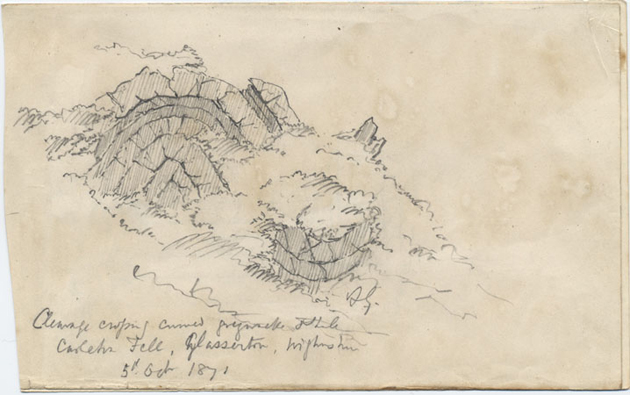 A.G.
Cleavage crossing curved greywacke & shale
Carleton Fell, Glasserton, Wigtonshire
5th Oct 1871